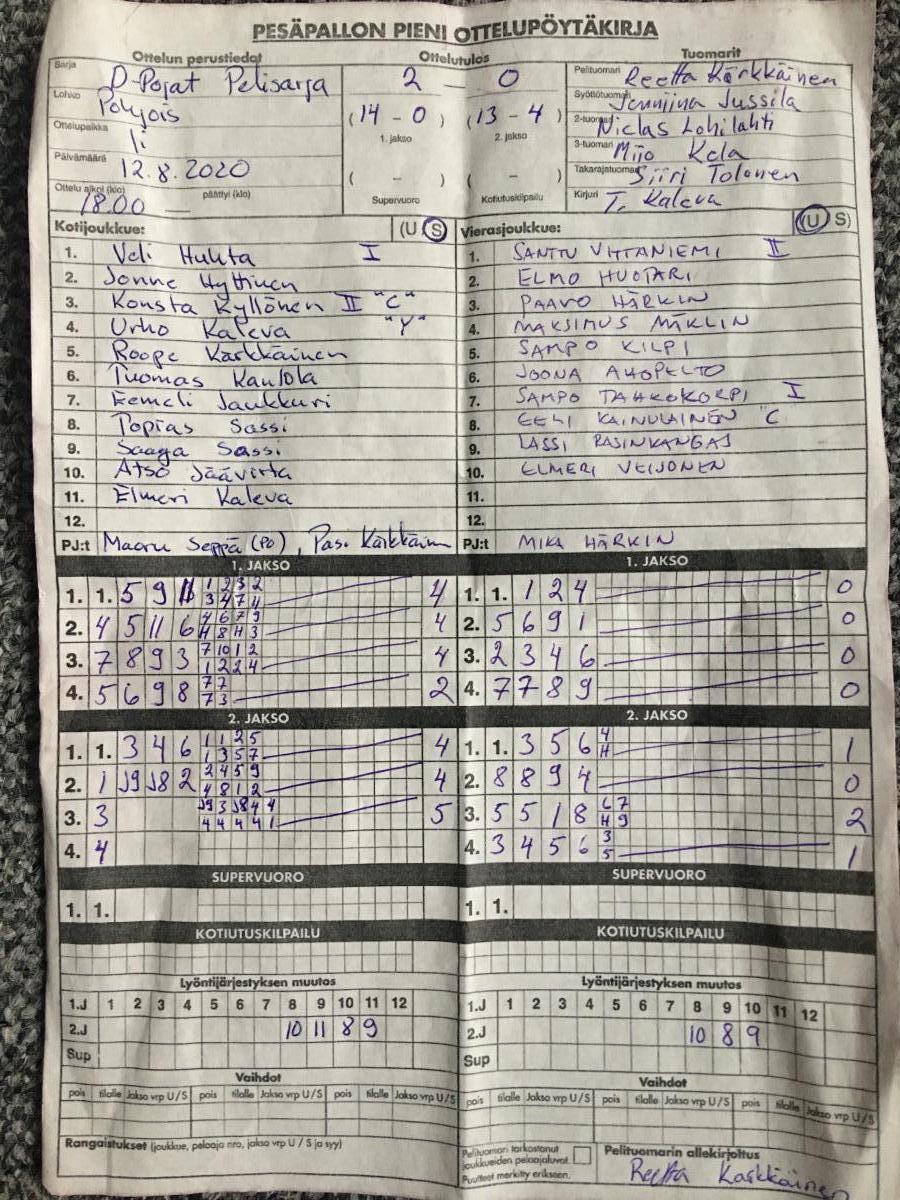 PESÄPALLON PIENI OTTELUPÖYTÄKIRJA
Ottelun perustiedot Ottelutulos Tuomarit
Sarja D-Pojat Pelisarja 2 — 0 Pelituomari Reetta Kärkkäinen
Lohko Pohjois (14 - 0) (13 - 4) Syöttötuomari Jenniina Jussila
Ottelupaikka Ii 1. jakso 2. jakso 2-tuomari Niclas Lohilahti
Päivämäärä 12.8.2020 ( - ) ( - ) 3-tuomari Mijo Kela
Takarajatuomari Siiri Tolonen
Ottelu alkoi (klo) 18.00 — päättyi (klo) Supervuoro Kotiutuskilpailu Kirjuri T. Kaleva
Kotijoukkue: (U S) Vierasjoukkue: (U S)
1. Veli Huhta I 1. SANTTU VIITANIEMI II
2. Jonne Hyttinen 2. ELMO HUOTARI
3. Konsta Kyllönen II "C" 3. PAAVO HÄRKIN
4. Urho Kaleva "Y" 4. MAKSIMUS MÄKLIN
5. Roope Kärkkäinen 5. SAMPO KILPI
6. Tuomas Kaulola 6. JOONA AHOPELTO
7. Eemeli Jaukkuri 7. SAMPO TAHKOKORPI I
8. Topias Sassi 8. EELI KAINULAINEN "C
9. Saaga Sassi 9. LASSI PASINKANGAS
10. Atso Jäävirta 10. ELMERI VEIJONEN
11. Elmeri Kaleva 11.
12. 12.
PJ:t Maaru Seppä (PO), Pasi Kärkkäinen PJ:t MIKA HÄRKIN
1. JAKSO 1. JAKSO
1. 1. 5 9 11 1 2 3 2 4 1. 1. 1 2 4 0
3 4 7 11
2. 4 5 11 6 4 6 7 9 4 2. 5 6 9 1 0
H 8 H 3
3. 7 8 9 3 7 10 1 2 4 3. 2 3 4 6 0
1 2 2 4
4. 5 6 9 8 7 7 2 4. 7 7 8 9 0
7 3
2. JAKSO 2. JAKSO
1. 1. 3 4 6 1 1 2 5 4 1. 1. 3 5 6 4 1
1 3 5 7 H
2. 1 J9 J8 2 2 4 5 9 4 2. 8 8 9 4 0
4 8 1 2
3. 3 J9 3 J8 4 4 5 3. 5 5 1 8 6 7 2
4 4 4 4 1 H 9
4. 4 4. 3 4 5 6 3 1
5
SUPERVUORO SUPERVUORO
1. 1. 1. 1.
KOTIUTUSKILPAILU KOTIUTUSKILPAILU
Lyöntijärjestyksen muutos Lyöntijärjestyksen muutos
1.J 1 2 3 4 5 6 7 8 9 10 11 12 1.J 1 2 3 4 5 6 7 8 9 10 11 12
2.J 10 11 8 9 2.J 10 8 9
Sup Sup
Vaihdot Vaihdot
pois tilalle Jakso vrp U/S pois tilalle Jakso vrp U/S pois tilalle Jakso vrp U/S pois tilalle Jakso vrp U/S pois tilalle Jakso vrp U/S pois tilalle Jakso vrp U/S
Rangaistukset (joukkue, pelaaja nro, jakso vrp U / S ja syy) Pelituomari tarkastanut Pelituomarin allekirjoitus
joukkueiden pelaajaluvat.
Puutteet merkitty erikseen. Reetta Kärkkäinen